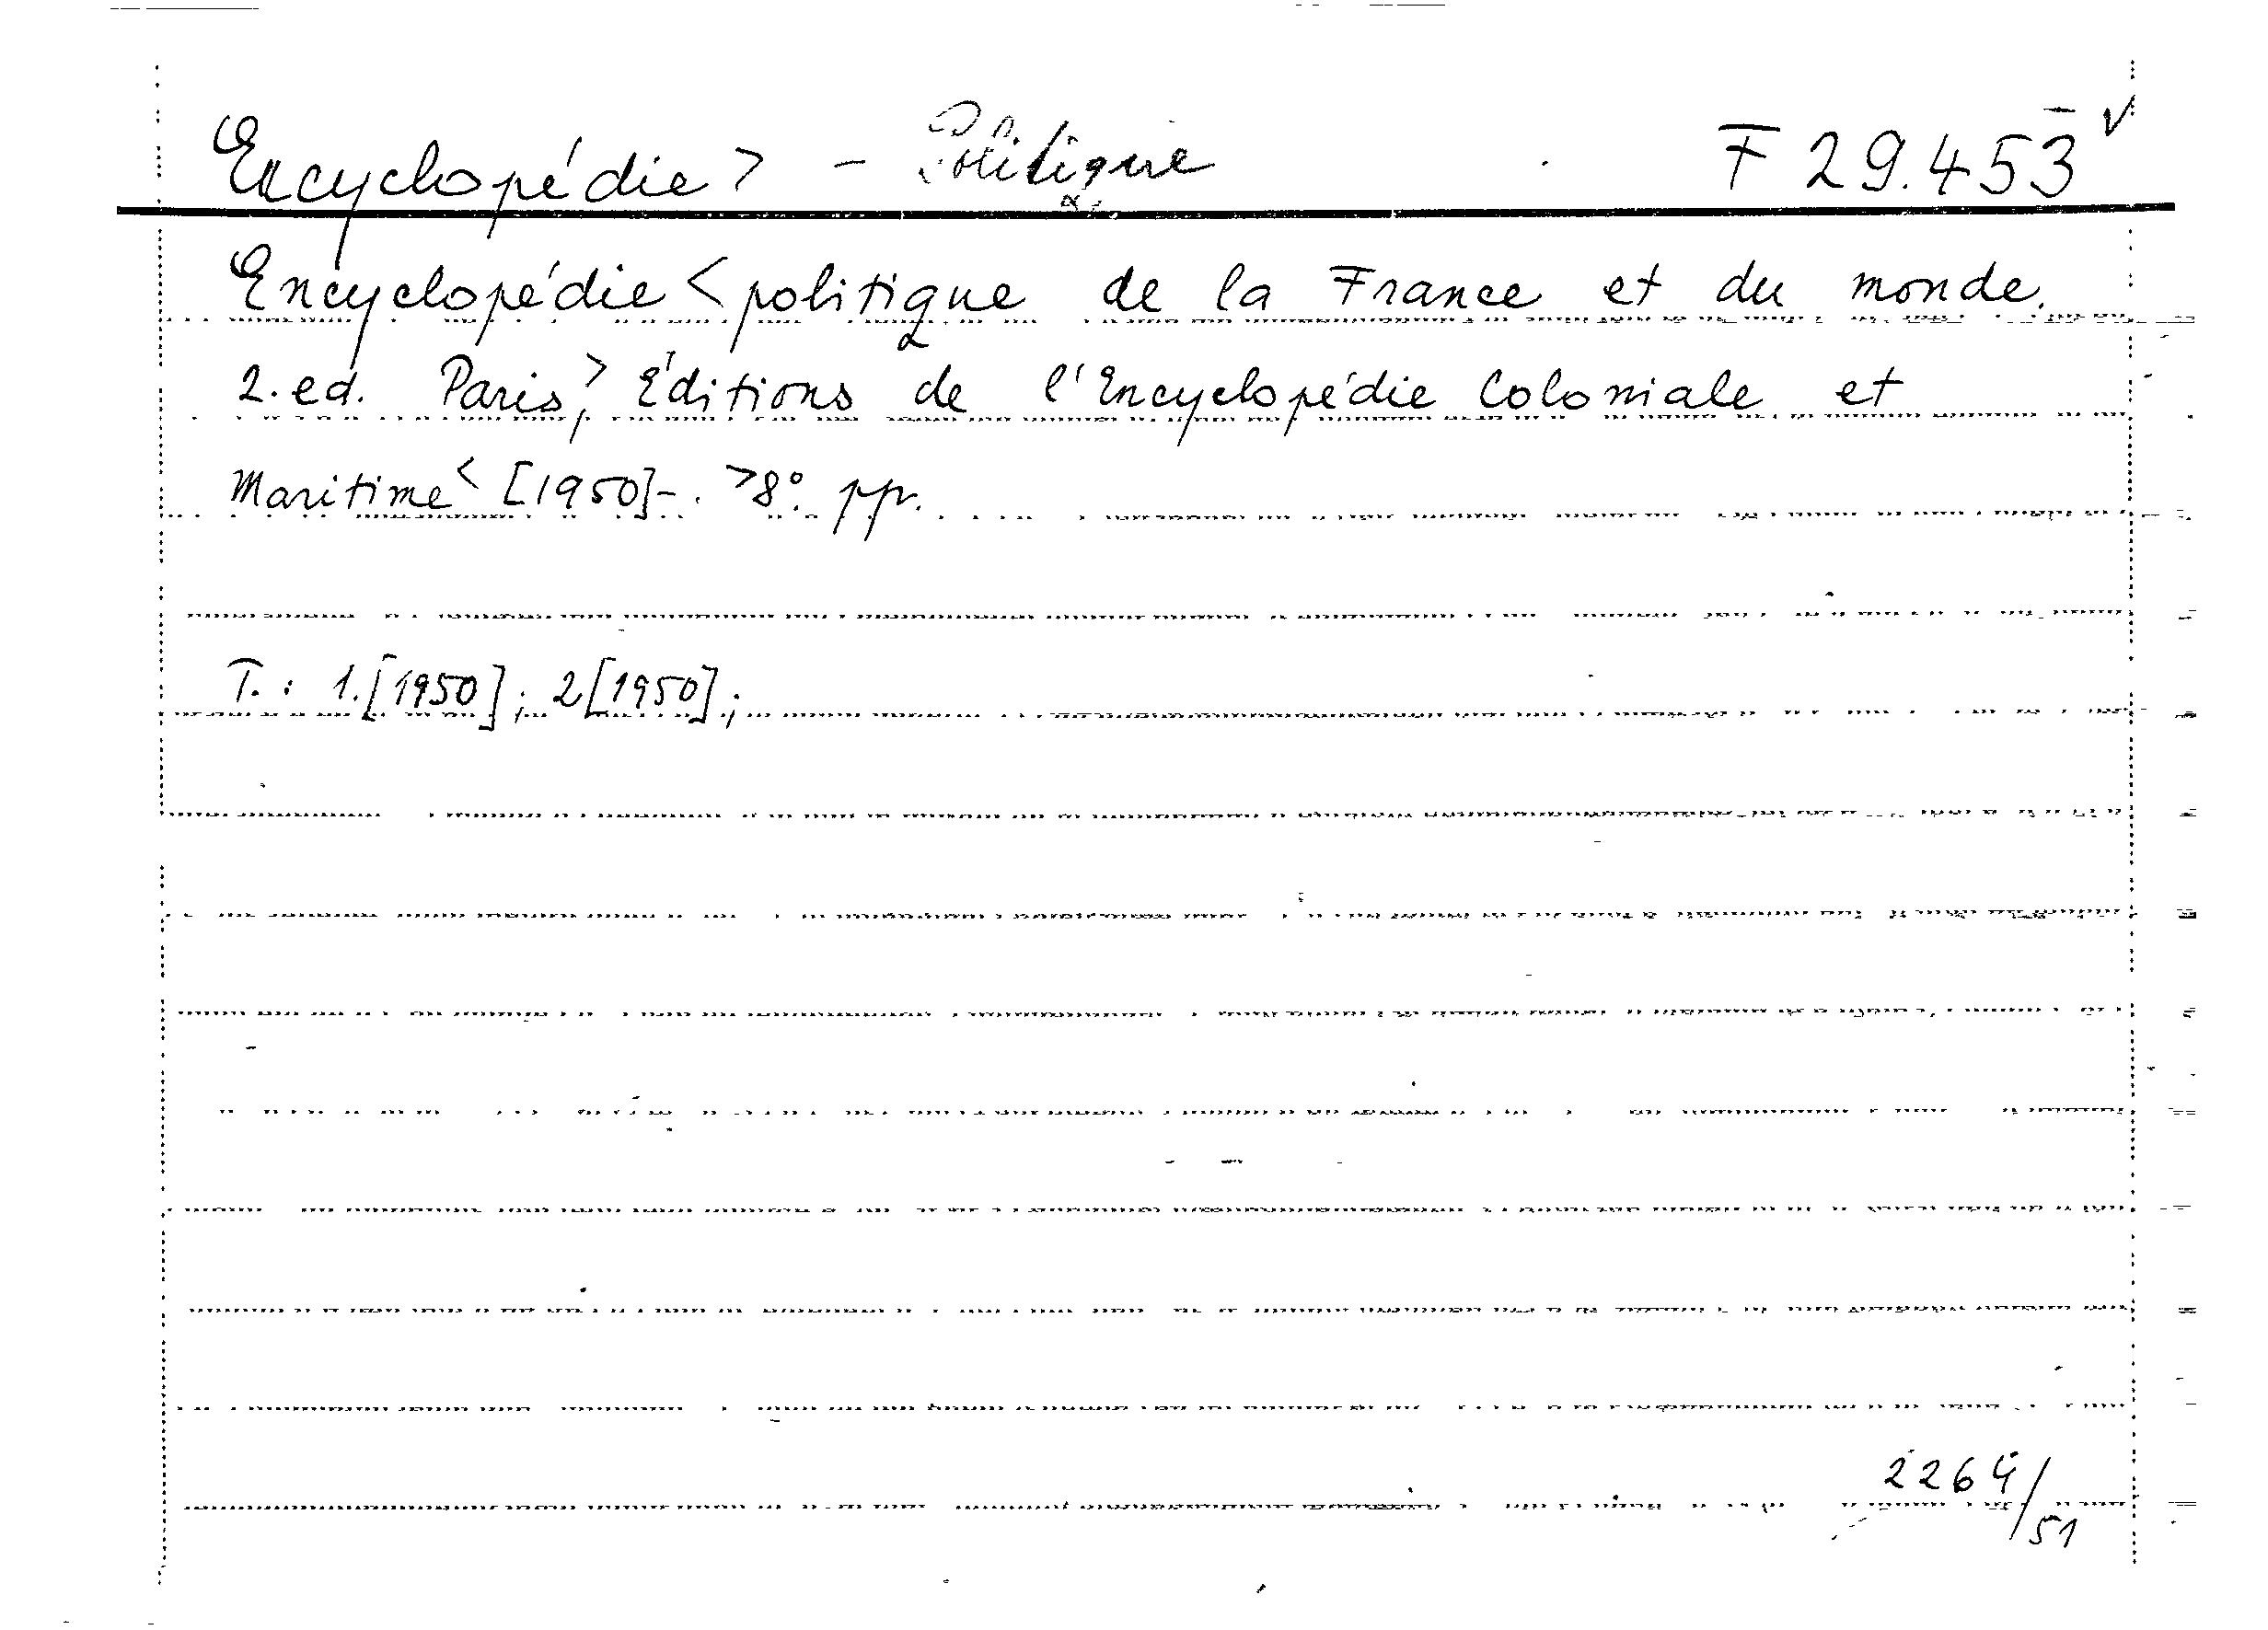 Encyclopédie > - Politique F 29.453 √
Encyclopédie < politique de la France et du monde.
2. ed. Paris, > Éditions de l'Encyclopédie Coloniale et
Maritime < [1950]- . > 8° pp.
T. : 1. [1950]; 2 [1950];
2264/51